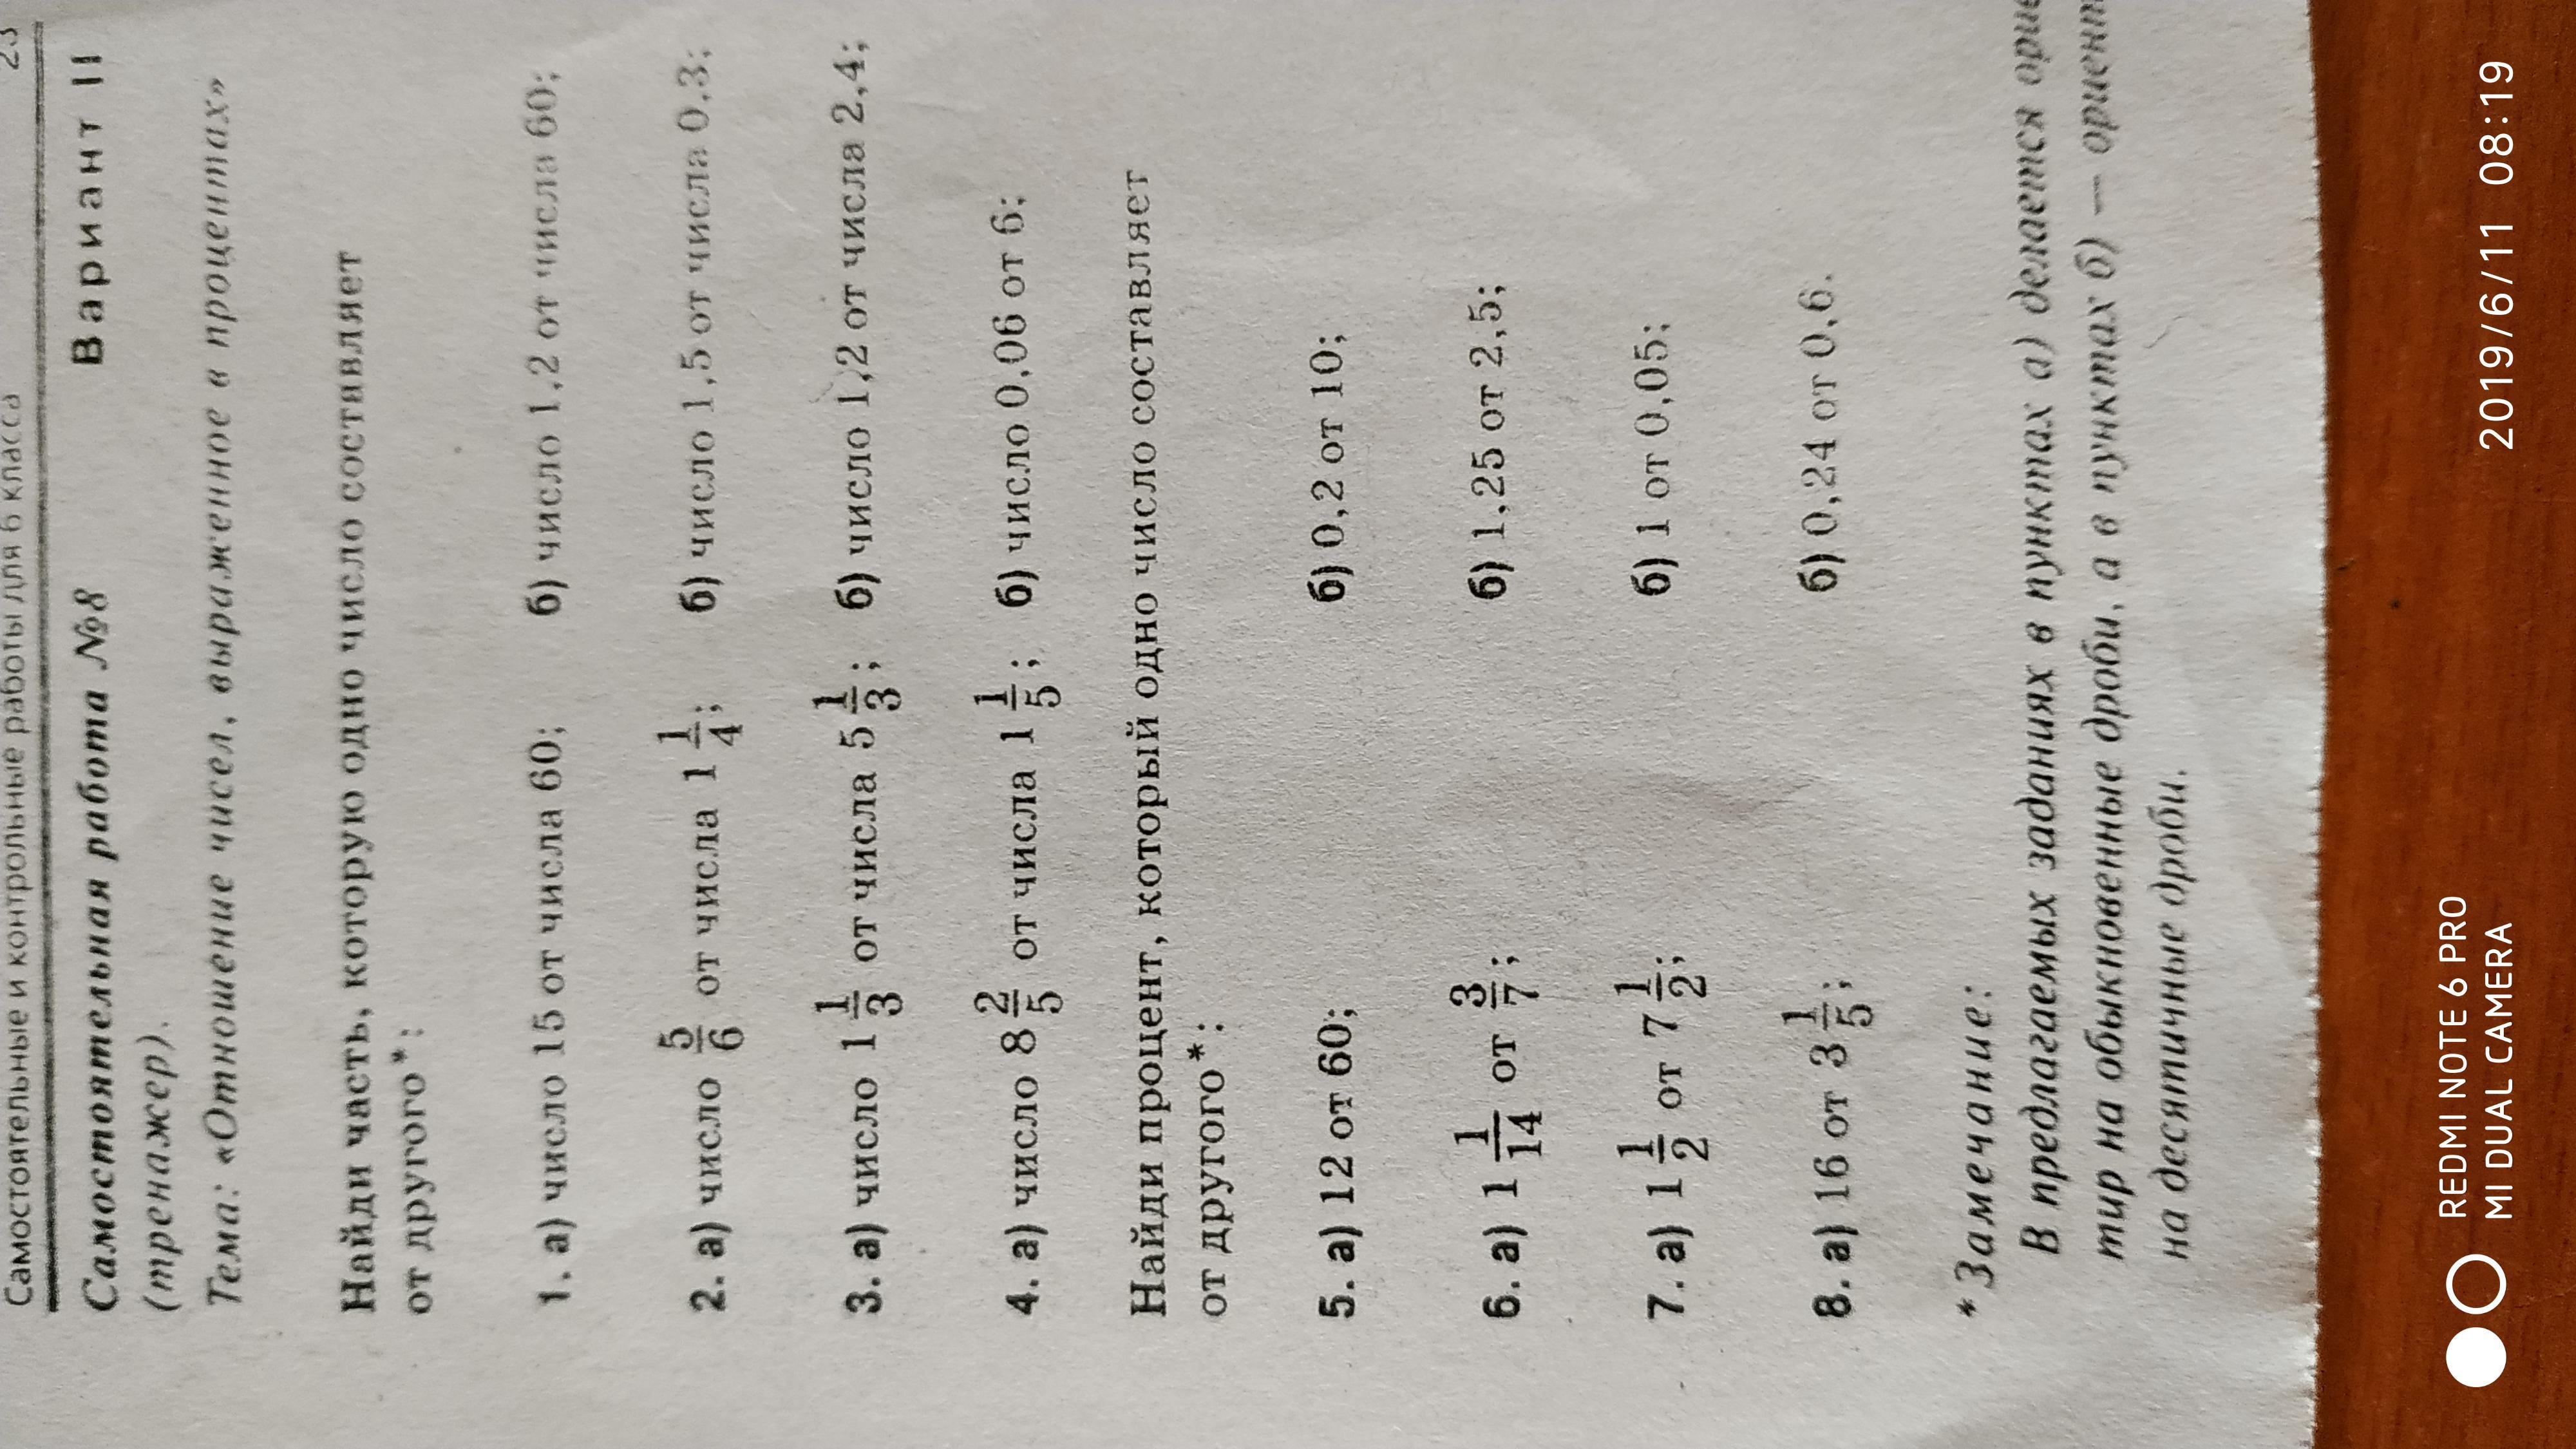 Самостоятельные и контрольные работы для 6 класса 23
Самостоятельная работа №8 Вариант II
(тренажер).
Тема: «Отношение чисел, выраженное в процентах»
Найди часть, которую одно число составляет
от другого*:
1. а) число 15 от числа 60; б) число 1,2 от числа 60;
2. а) число 5/6 от числа 1 1/4; б) число 1,5 от числа 0,3;
3. а) число 1 1/3 от числа 5 1/3; б) число 1,2 от числа 2,4;
4. а) число 8 2/5 от числа 1 1/5; б) число 0,06 от 6;
Найди процент, который одно число составляет
от другого*:
5. а) 12 от 60; б) 0,2 от 10;
6. а) 1 1/14 от 3/7; б) 1,25 от 2,5;
7. а) 1 1/2 от 7 1/2; б) 1 от 0,05;
8. а) 16 от 3 1/5; б) 0,24 от 0,6.
* Замечание:
В предлагаемых заданиях в пунктах а) делается
тир на обыкновенные дроби, а в пунктах б) —
на десятичные дроби.
REDMI NOTE 6 PRO
MI DUAL CAMERA
2019/6/11 08:19